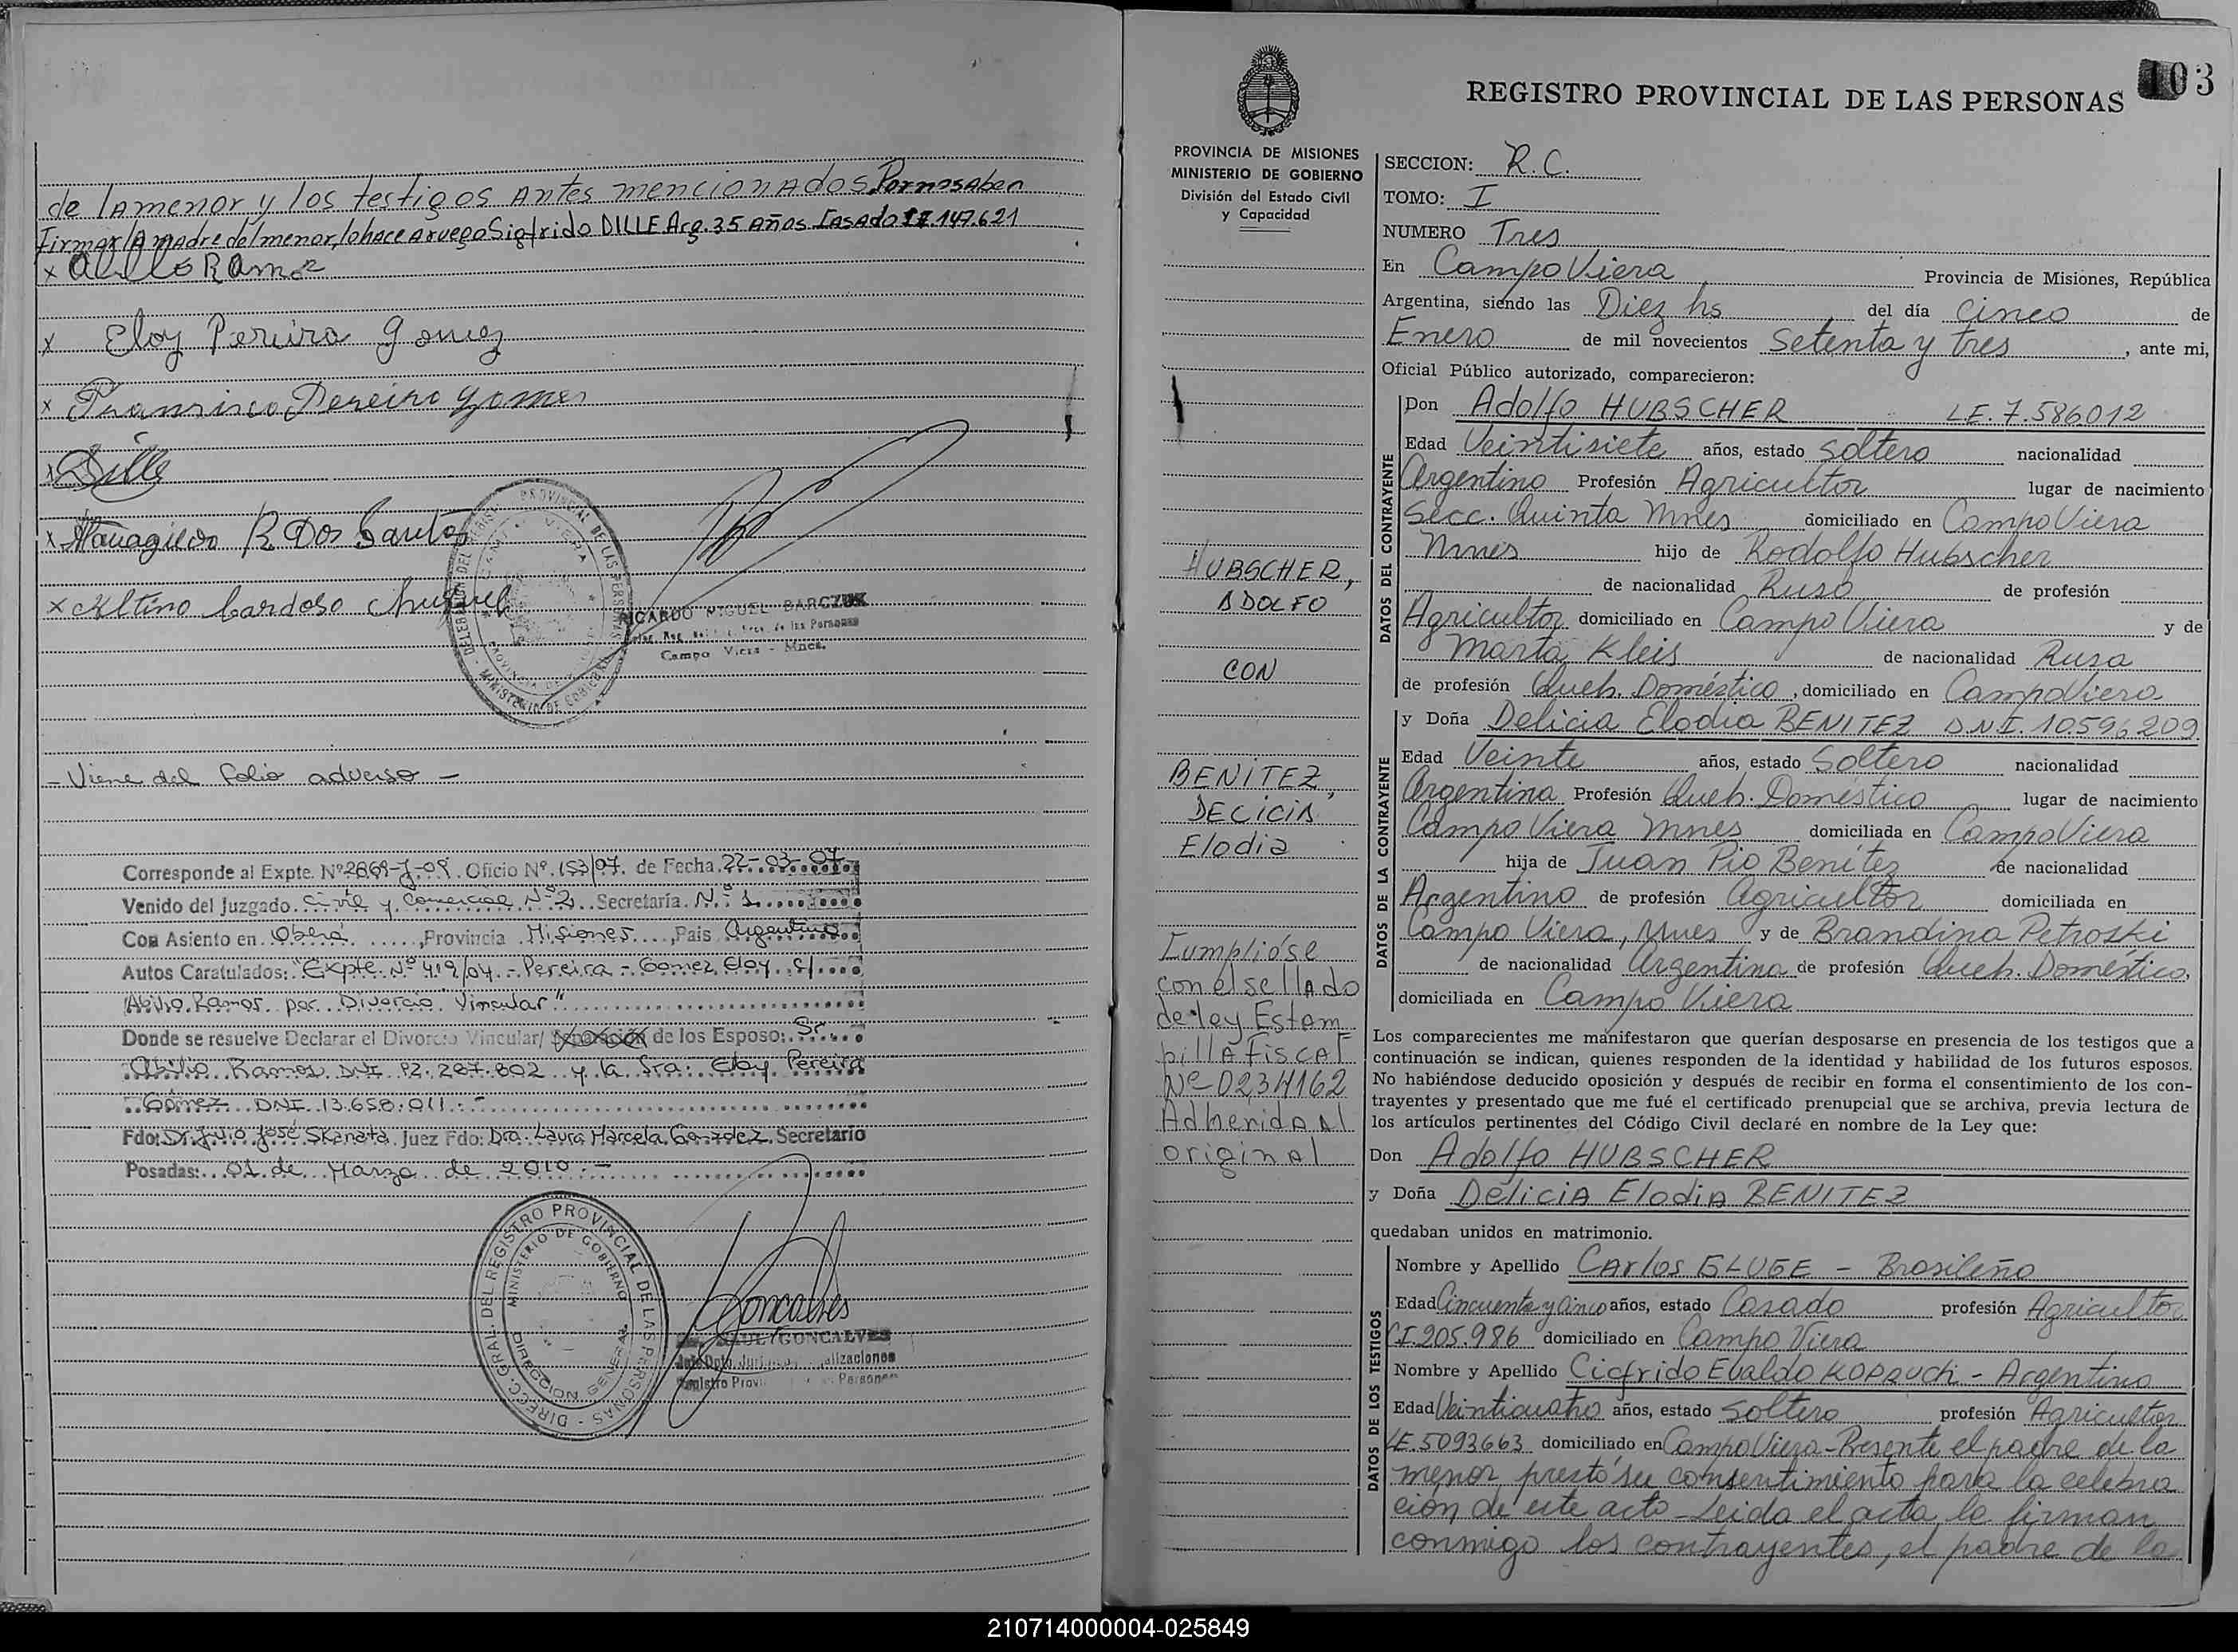 de lAmenor y los testigos Antes mencionAdos. Por no sAber
Firmar lA mAdre del menor, lo hAce A ruego Sigfrido DILLE Arg. 35 Años CAsAdo 147.621
x RAmos
x Eloy Pereira Gomez
x Francisco Pereira Gomes
x Dille
x R Dos Santos
x Altino Cardoso
RICARDO MIGUEL BARCZUK
Campo Viera - Mnes.
- Viene del folio adverso -
Corresponde al Expte. Nº 2869-J-09. Oficio Nº 153/07. de Fecha 22-03-07
Venido del Juzgado Civil y Comercial Nº 2. Secretaría. Nº 1.
Con Asiento en Oberá, Provincia Misiones, Pais Argentina
Autos Caratulados: "Expte. Nº 419/04.- Pereira - Gomez Eloy S/
Abilio Ramos por Divorcio Vincular"
Donde se resuelve Declarar el Divorcio Vincular/ Separación de los Esposo: Sr.
Abilio Ramos DNI 92.287.802 y la Sra: Eloy Pereira
Gómez DNI 13.658.011.-
Fdo: Dr. Julio José Skanata Juez Fdo: Dra. Laura Marcela Secretario
Posadas: 01 de Marzo de 2010.-
DIRECC. GRAL. DEL REGISTRO PROVINCIAL DE LAS PERSONAS
MINISTERIO DE GOBIERNO
DIRECCION GENERAL
Goncalves
GONCALVES
103
REGISTRO PROVINCIAL DE LAS PERSONAS
PROVINCIA DE MISIONES
MINISTERIO DE GOBIERNO
División del Estado Civil
y Capacidad
HUBSCHER,
ADOLFO
CON
BENITEZ,
DELICIA
Elodia
Cumplióse
con el sellAdo
de ley EstAm
pillA FiscAl
Nº 0234162
AdheridA Al
originAl
SECCION: R.C.
TOMO: I
NUMERO Tres
En Campo Viera Provincia de Misiones, República
Argentina, siendo las Diez hs del día Cinco de
Enero de mil novecientos Setenta y tres, ante mi,
Oficial Público autorizado, comparecieron:
DATOS DEL CONTRAYENTE
Don Adolfo HUBSCHER LE. 7.586.012
Edad Veintisiete años, estado Soltero nacionalidad
Argentino Profesión Agricultor lugar de nacimiento
Secc. Quinta Mnes domiciliado en Campo Viera
Mnes hijo de Rodolfo Hubscher
de nacionalidad Ruso de profesión
Agricultor domiciliado en Campo Viera y de
Marta Kleis de nacionalidad Rusa
de profesión Queh. Doméstico, domiciliado en Campo Viera
DATOS DE LA CONTRAYENTE
y Doña Delicia Elodia BENITEZ D.N.I. 10.596.209
Edad Veinte años, estado Soltera nacionalidad
Argentina Profesión Queh. Doméstico lugar de nacimiento
Campo Viera Mnes domiciliada en Campo Viera
hija de Juan Pio Benítez de nacionalidad
Argentino de profesión Agricultor domiciliada en
Campo Viera, Mnes y de Brandina Petroski
de nacionalidad Argentina de profesión Queh. Doméstico,
domiciliada en Campo Viera
Los comparecientes me manifestaron que querían desposarse en presencia de los testigos que a
continuación se indican, quienes responden de la identidad y habilidad de los futuros esposos.
No habiéndose deducido oposición y después de recibir en forma el consentimiento de los con-
trayentes y presentado que me fué el certificado prenupcial que se archiva, previa lectura de
los artículos pertinentes del Código Civil declaré en nombre de la Ley que:
Don Adolfo HUBSCHER
y Doña DeliciA ElodiA BENITEZ
quedaban unidos en matrimonio.
DATOS DE LOS TESTIGOS
Nombre y Apellido CArlos GLUGE - Brasileño
Edad Cincuenta y Cinco años, estado Casado profesión Agricultor
C.I. 205.986 domiciliado en Campo Viera
Nombre y Apellido Cigfrido Evaldo KOPRUCH - Argentino
Edad Veinticuatro años, estado Soltero profesión Agricultor
LE. 5093663 domiciliado en Campo Viera - Presente el padre de la
menor prestó su consentimiento para la celebra
ción de este acto - Leida el acta, la firman
conmigo los contrayentes, el padre de la
210714000004-025849